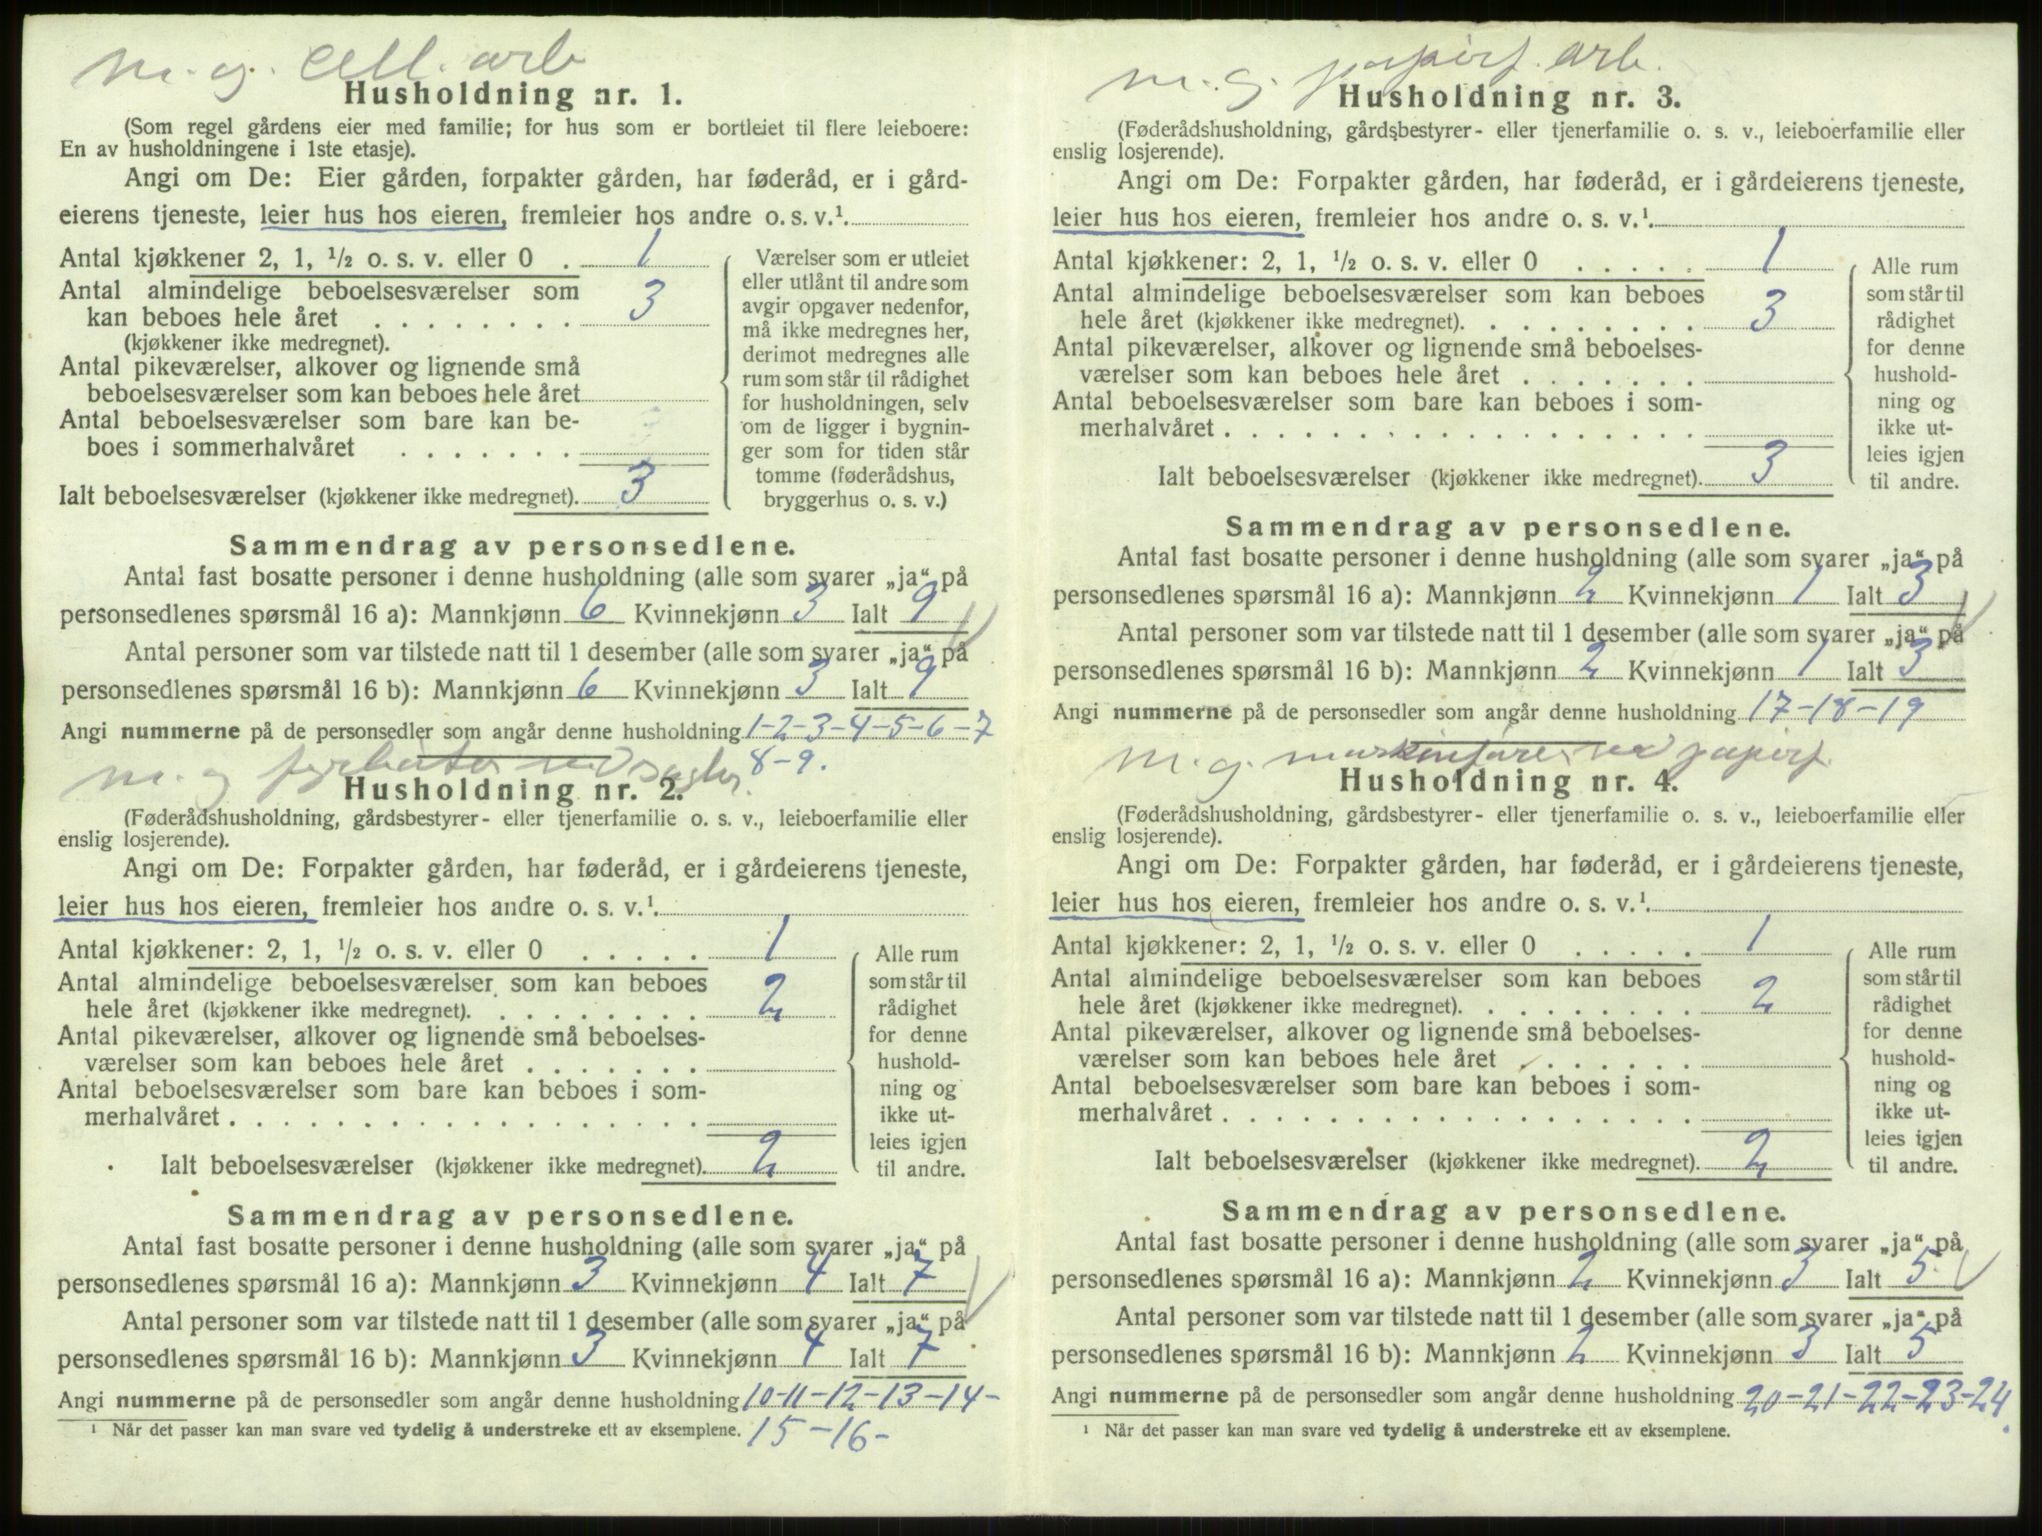 m. g. cell. arb
Husholdning nr. 1.
(Som regel gårdens eier med familie; for hus som er bortleiet til flere leieboere:
En av husholdningene i 1ste etasje).
Angi om De: Eier gården, forpakter gården, har føderåd, er i gård-
eierens tjeneste, leier hus hos eieren, fremleier hos andre o. s. v.¹.
Antal kjøkkener 2, 1, ½ o. s. v. eller 0 . 1
Antal almindelige beboelsesværelser som
kan beboes hele året . . . . . . . . 3
(kjøkkener ikke medregnet).
Antal pikeværelser, alkover og lignende små
beboelsesværelser som kan beboes hele året
Antal beboelsesværelser som bare kan be-
boes i sommerhalvåret . . . . . . .
Ialt beboelsesværelser (kjøkkener ikke medregnet). 3
Værelser som er utleiet
eller utlånt til andre som
avgir opgaver nedenfor,
må ikke medregnes her,
derimot medregnes alle
rum som står til rådighet
for husholdningen, selv
om de ligger i bygnin-
ger som for tiden står
tomme (føderådshus,
bryggerhus o. s. v.)
Sammendrag av personsedlene.
Antal fast bosatte personer i denne husholdning (alle som svarer „ja“ på
personsedlenes spørsmål 16 a): Mannkjønn 6 Kvinnekjønn 3 Ialt 9
Antal personer som var tilstede natt til 1 desember (alle som svarer „ja“ på
personsedlenes spørsmål 16 b): Mannkjønn 6 Kvinnekjønn 3 Ialt 9
Angi nummerne på de personsedler som angår denne husholdning 1-2-3-4-5-6-7
8-9.
m. g.
Husholdning nr. 2.
(Føderådshusholdning, gårdsbestyrer- eller tjenerfamilie o. s. v., leieboerfamilie eller
enslig losjerende).
Angi om De: Forpakter gården, har føderåd, er i gårdeierens tjeneste,
leier hus hos eieren, fremleier hos andre o. s. v.¹.
Antal kjøkkener: 2, 1, ½ o. s. v. eller 0 . . . . . 1
Antal almindelige beboelsesværelser som kan beboes
hele året (kjøkkener ikke medregnet). . . . . . . . . 2
Antal pikeværelser, alkover og lignende små beboelses-
værelser som kan beboes hele året . . . . . . .
Antal beboelsesværelser som bare kan beboes i som-
merhalvåret . . . . . . . . . . . . . . . . . .
Ialt beboelsesværelser (kjøkkener ikke medregnet). 2
Alle rum
som står til
rådighet
for denne
hushold-
ning og
ikke ut-
leies igjen
til andre.
Sammendrag av personsedlene.
Antal fast bosatte personer i denne husholdning (alle som svarer „ja“ på
personsedlenes spørsmål 16 a): Mannkjønn 3 Kvinnekjønn 4 Ialt 7
Antal personer som var tilstede natt til 1 desember (alle som svarer „ja“ på
personsedlenes spørsmål 16 b): Mannkjønn 3 Kvinnekjønn 4 Ialt 7
Angi nummerne på de personsedler som angår denne husholdning 10-11-12-13-14-
15-16-
¹ Når det passer kan man svare ved tydelig å understreke ett av eksemplene.
m. g. papirf. arb.
Husholdning nr. 3.
(Føderådshusholdning, gårdsbestyrer- eller tjenerfamilie o. s. v., leieboerfamilie eller
enslig losjerende).
Angi om De: Forpakter gården, har føderåd, er i gårdeierens tjeneste,
leier hus hos eieren, fremleier hos andre o. s. v.¹.
Antal kjøkkener: 2, 1, ½ o. s. v. eller 0 . . . . . 1
Antal almindelige beboelsesværelser som kan beboes
hele året (kjøkkener ikke medregnet). . . . . . . . . 3
Antal pikeværelser, alkover og lignende små beboelses-
værelser som kan beboes hele året . . . . . . .
Antal beboelsesværelser som bare kan beboes i som-
merhalvåret . . . . . . . . . . . . . . . . . .
Ialt beboelsesværelser (kjøkkener ikke medregnet). 3
Alle rum
som står til
rådighet
for denne
hushold-
ning og
ikke ut-
leies igjen
til andre.
Sammendrag av personsedlene.
Antal fast bosatte personer i denne husholdning (alle som svarer „ja“ på
personsedlenes spørsmål 16 a): Mannkjønn 2 Kvinnekjønn 1 Ialt 3
Antal personer som var tilstede natt til 1 desember (alle som svarer „ja“ på
personsedlenes spørsmål 16 b): Mannkjønn 2 Kvinnekjønn 1 Ialt 3
Angi nummerne på de personsedler som angår denne husholdning 17-18-19
m. g. maskinfører ved papirf.
Husholdning nr. 4.
(Føderådshusholdning, gårdsbestyrer- eller tjenerfamilie o. s. v., leieboerfamilie eller
enslig losjerende).
Angi om De: Forpakter gården, har føderåd, er i gårdeierens tjeneste,
leier hus hos eieren, fremleier hos andre o. s. v.¹.
Antal kjøkkener: 2, 1, ½ o. s. v. eller 0 . . . . . 1
Antal almindelige beboelsesværelser som kan beboes
hele året (kjøkkener ikke medregnet). . . . . . . . . 2
Antal pikeværelser, alkover og lignende små beboelses-
værelser som kan beboes hele året . . . . . . .
Antal beboelsesværelser som bare kan beboes i som-
merhalvåret . . . . . . . . . . . . . . . . . .
Ialt beboelsesværelser (kjøkkener ikke medregnet). 2
Alle rum
som står til
rådighet
for denne
hushold-
ning og
ikke ut-
leies igjen
til andre.
Sammendrag av personsedlene.
Antal fast bosatte personer i denne husholdning (alle som svarer „ja“ på
personsedlenes spørsmål 16 a): Mannkjønn 2 Kvinnekjønn 3 Ialt 5
Antal personer som var tilstede natt til 1 desember (alle som svarer „ja“ på
personsedlenes spørsmål 16 b): Mannkjønn 2 Kvinnekjønn 3 Ialt 5
Angi nummerne på de personsedler som angår denne husholdning 20-21-22-23-24.
¹ Når det passer kan man svare ved tydelig å understreke ett av eksemplene.